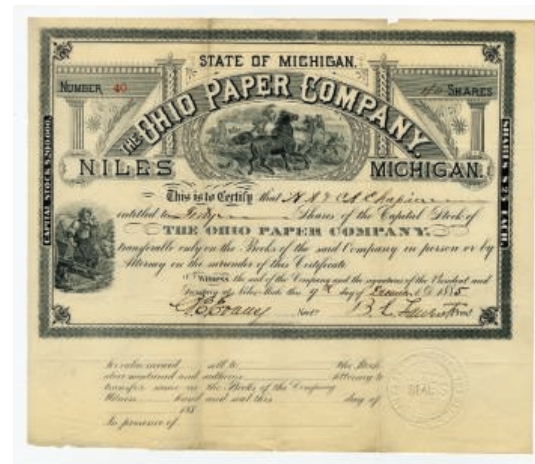 STATE OF MICHIGAN.
NUMBER 40
SHARES
THE OHIO PAPER COMPANY.
NILES MICHIGAN.
CAPITAL STOCK $200,000.
SHARES $25 EACH.
This is to Certify that H A & C A Chapin
entitled to Shares of the Capital Stock of
THE OHIO PAPER COMPANY.
transferable only on the Books of the said Company in person or by
Attorney on the surrender of this Certificate.
Witness the seal of the Company and the signatures of the President and
Secretary at Niles Mich this 9th day of A.D. 1885
Evans Sec'y B. L.
for value received sell to the Stock
above mentioned and authorize Attorney to
transfer same on the Books of the Company
Witness hand and seal this day of
188
In presence of
SEAL